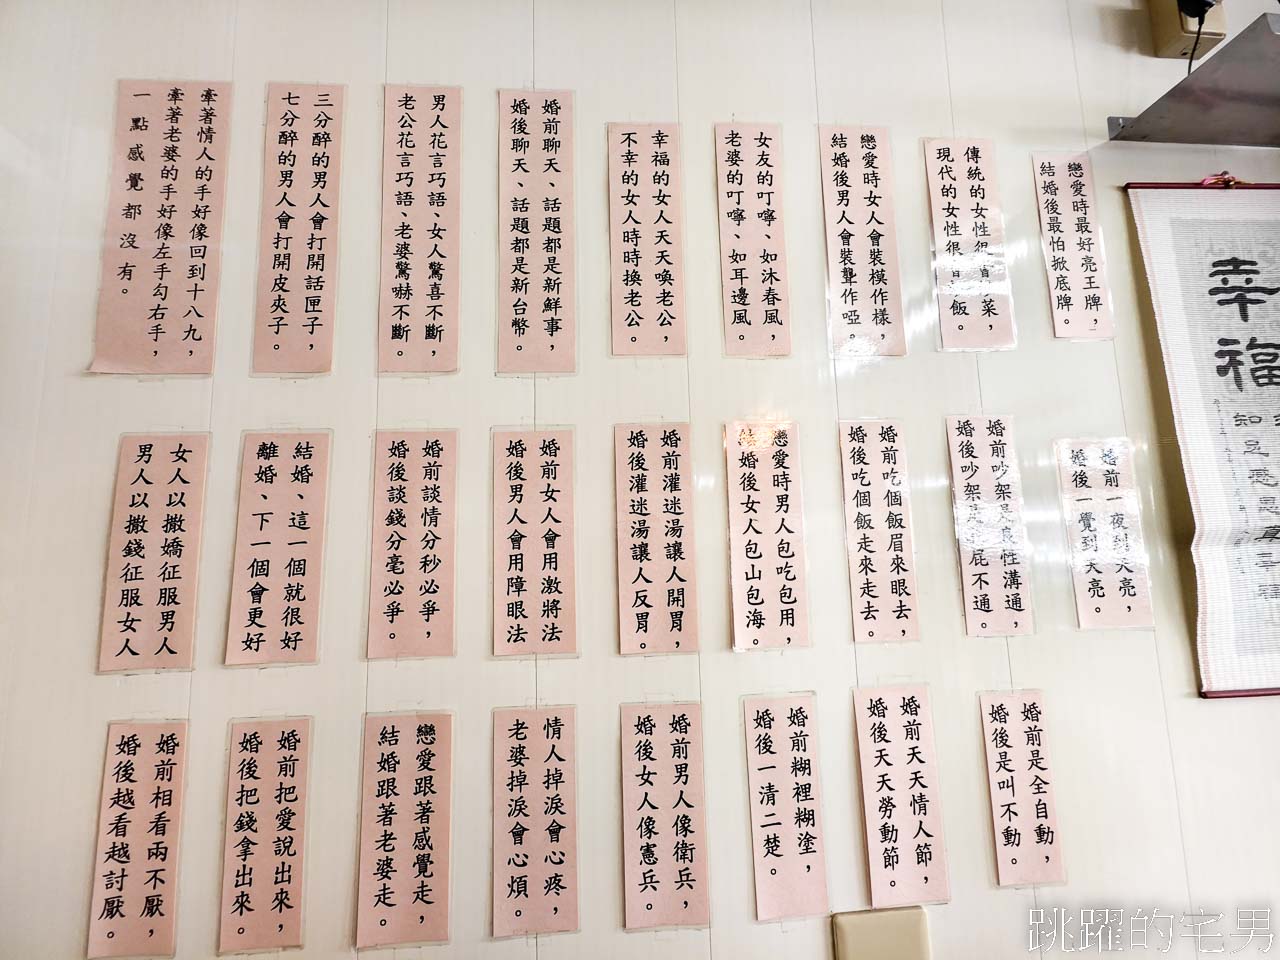 戀愛時最好亮王牌，
結婚後最怕掀底牌。
傳統的女性很
菜，
現代的女性很
飯。
戀愛時女人會裝模作樣，
結婚後男人會裝聾作啞。
女友的叮嚀、如沐春風，
老婆的叮嚀、如耳邊風。
幸福的女人天天喚老公，
不幸的女人時時換老公。
婚前聊天、話題都是新鮮事，
婚後聊天、話題都是新台幣。
男人花言巧語、女人驚喜不斷，
老公花言巧語、老婆驚嚇不斷。
三分醉的男人會打開話匣子，
七分醉的男人會打開皮夾子。
牽著情人的手好像回到十八九，
牽著老婆的手好像左手勾右手，
一點感覺都沒有。
婚前一夜到天亮，
婚後一覺到天亮。
婚前吵架是良性溝通，
婚後吵架是
屁不通。
婚前吃個飯眉來眼去，
婚後吃個飯走來走去。
戀愛時男人包吃包用，
結婚後女人包山包海。
婚前灌迷湯讓人開胃，
婚後灌迷湯讓人反胃。
婚前女人會用激將法
婚後男人會用障眼法
婚前談情分秒必爭，
婚後談錢分毫必爭。
結婚、這一個就很好
離婚、下一個會更好
女人以撒嬌征服男人
男人以撒錢征服女人
婚前是全自動，
婚後是叫不動。
婚前天天情人節，
婚後天天勞動節。
婚前糊裡糊塗，
婚後一清二楚。
婚前男人像衛兵，
婚後女人像憲兵。
情人掉淚會心疼，
老婆掉淚會心煩。
戀愛跟著感覺走，
結婚跟著老婆走。
婚前把愛說出來，
婚後把錢拿出來。
婚前相看兩不厭，
婚後越看越討厭。
幸福
知足感恩真幸福
跳躍的宅男